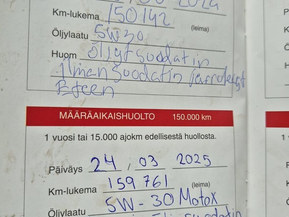 2024
Km-lukema 150142
Öljylaatu 5W30 (leima)
Huom öljyt suodatin
ilman suodatin
MÄÄRÄAIKAISHUOLTO 150.000 km
1 vuosi tai 15.000 ajokm edellisestä huollosta.
Päiväys 24.03 2025
Km-lukema 159761 (leima)
Öljylaatu 5W-30 Motox